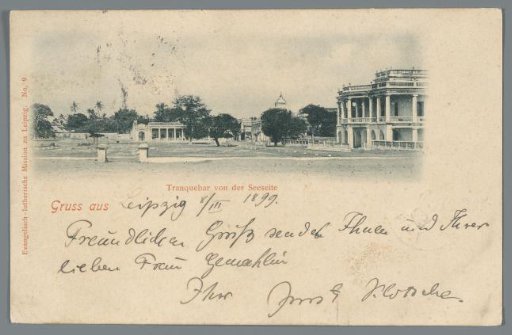 Evangelisch-lutherische Mission zu Leipzig. No. 9
Tranquebar von der Seeseite
Gruss aus Leipzig 8/III 1899.
Freundlichen Gruß sendet Ihnen und Ihrer
lieben Frau Gemahlin
Ihr